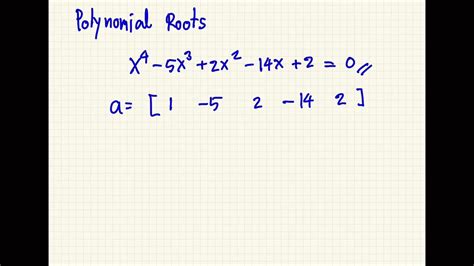 Polynomial Roots
x⁴-5x³+2x²-14x+2=0//
a= [ 1 -5 2 -14 2 ]